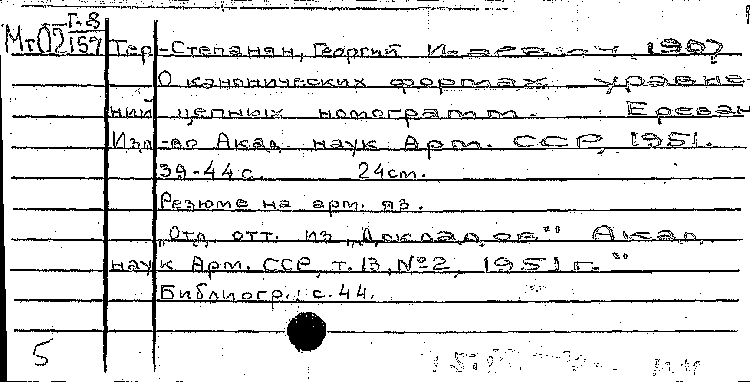 Т.8
Мт02 159
Тер-Степанян, Георгий 1907
О канонических формах уравне-
ний цепных номограмм. Ереван
Изд-во Акад. наук Арм. ССР, 1951.
39-44 с. 24 cm.
Резюме на арм. яз.
"Отд. отт. из „Докладов" Акад.
наук Арм. ССР, т. 13, №2, 1951 г."
Библиогр.: с. 44.
5